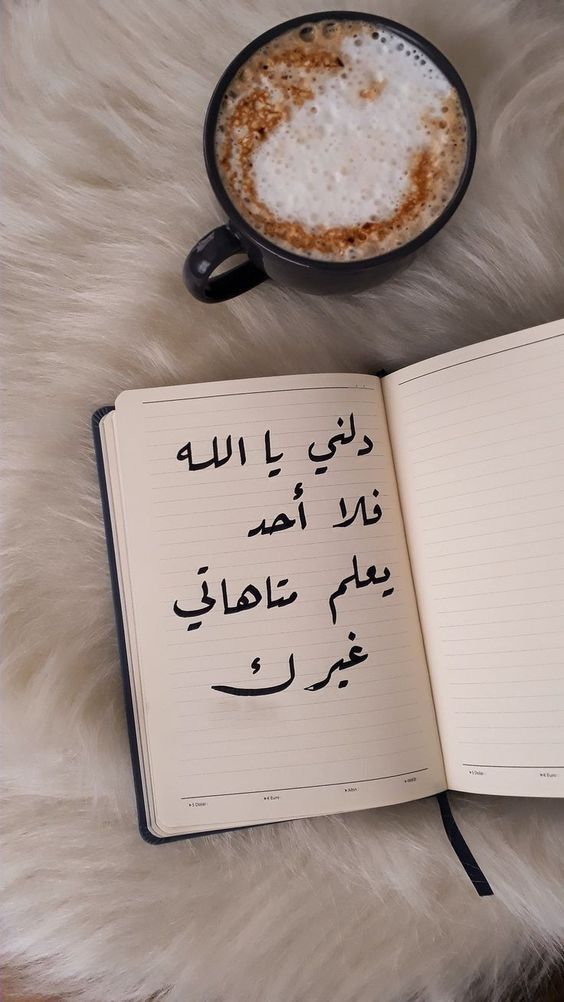 دلني يا الله
فلا أحد
يعلم متاهاتي
غيرك